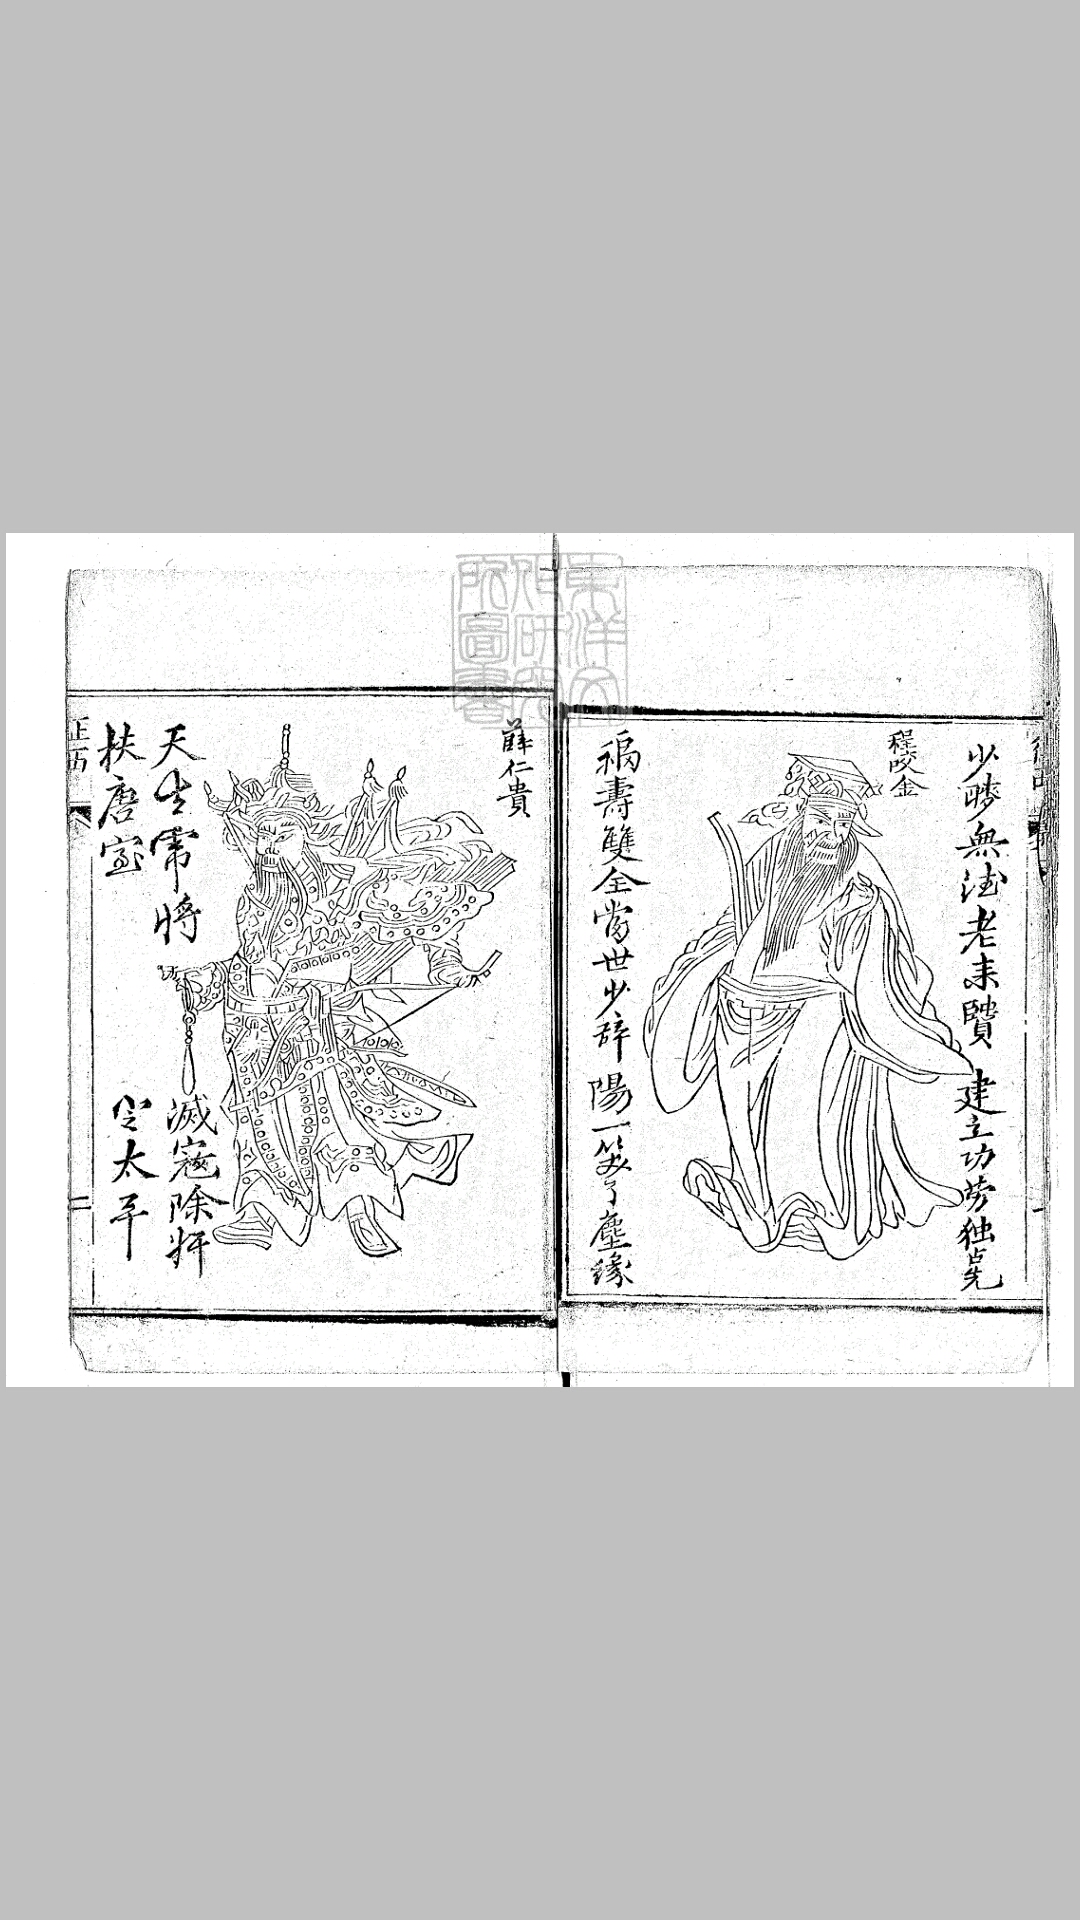 東洋文
化研究
所圖書
少時無法老来賢 建立功劳独占先
程咬金
福壽雙全當世少 辞陽一笑了塵緣
薛仁貴
天生將 滅寇除奸
扶唐室 太平